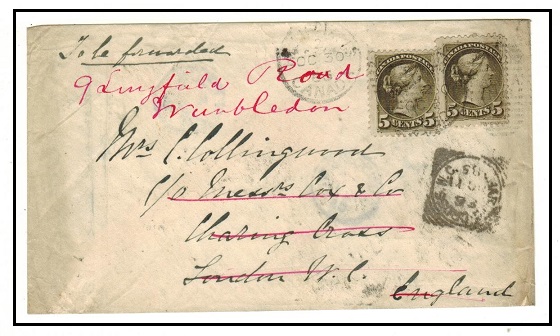 To be forwarded
9 Lingfield Road
Wimbledon
Mrs C. Collingwood
c/o Messrs Cox & Co
Charing Cross
London W.C.
England
OC 30
CANADA
CANADA POSTAGE
5 CENTS 5
CANADA POSTAGE
5 CENTS 5